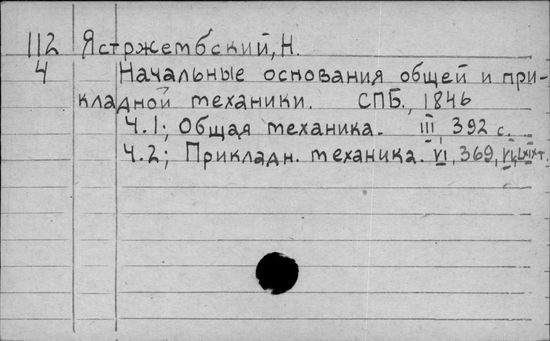 112 Ястржембский, Н.
4 Начальные основания общей и при-
кладной механики. СПБ., 1846
Ч.1; Общая механика. III, 392 с.
Ч.2; Прикладн. механика. VI, 369,